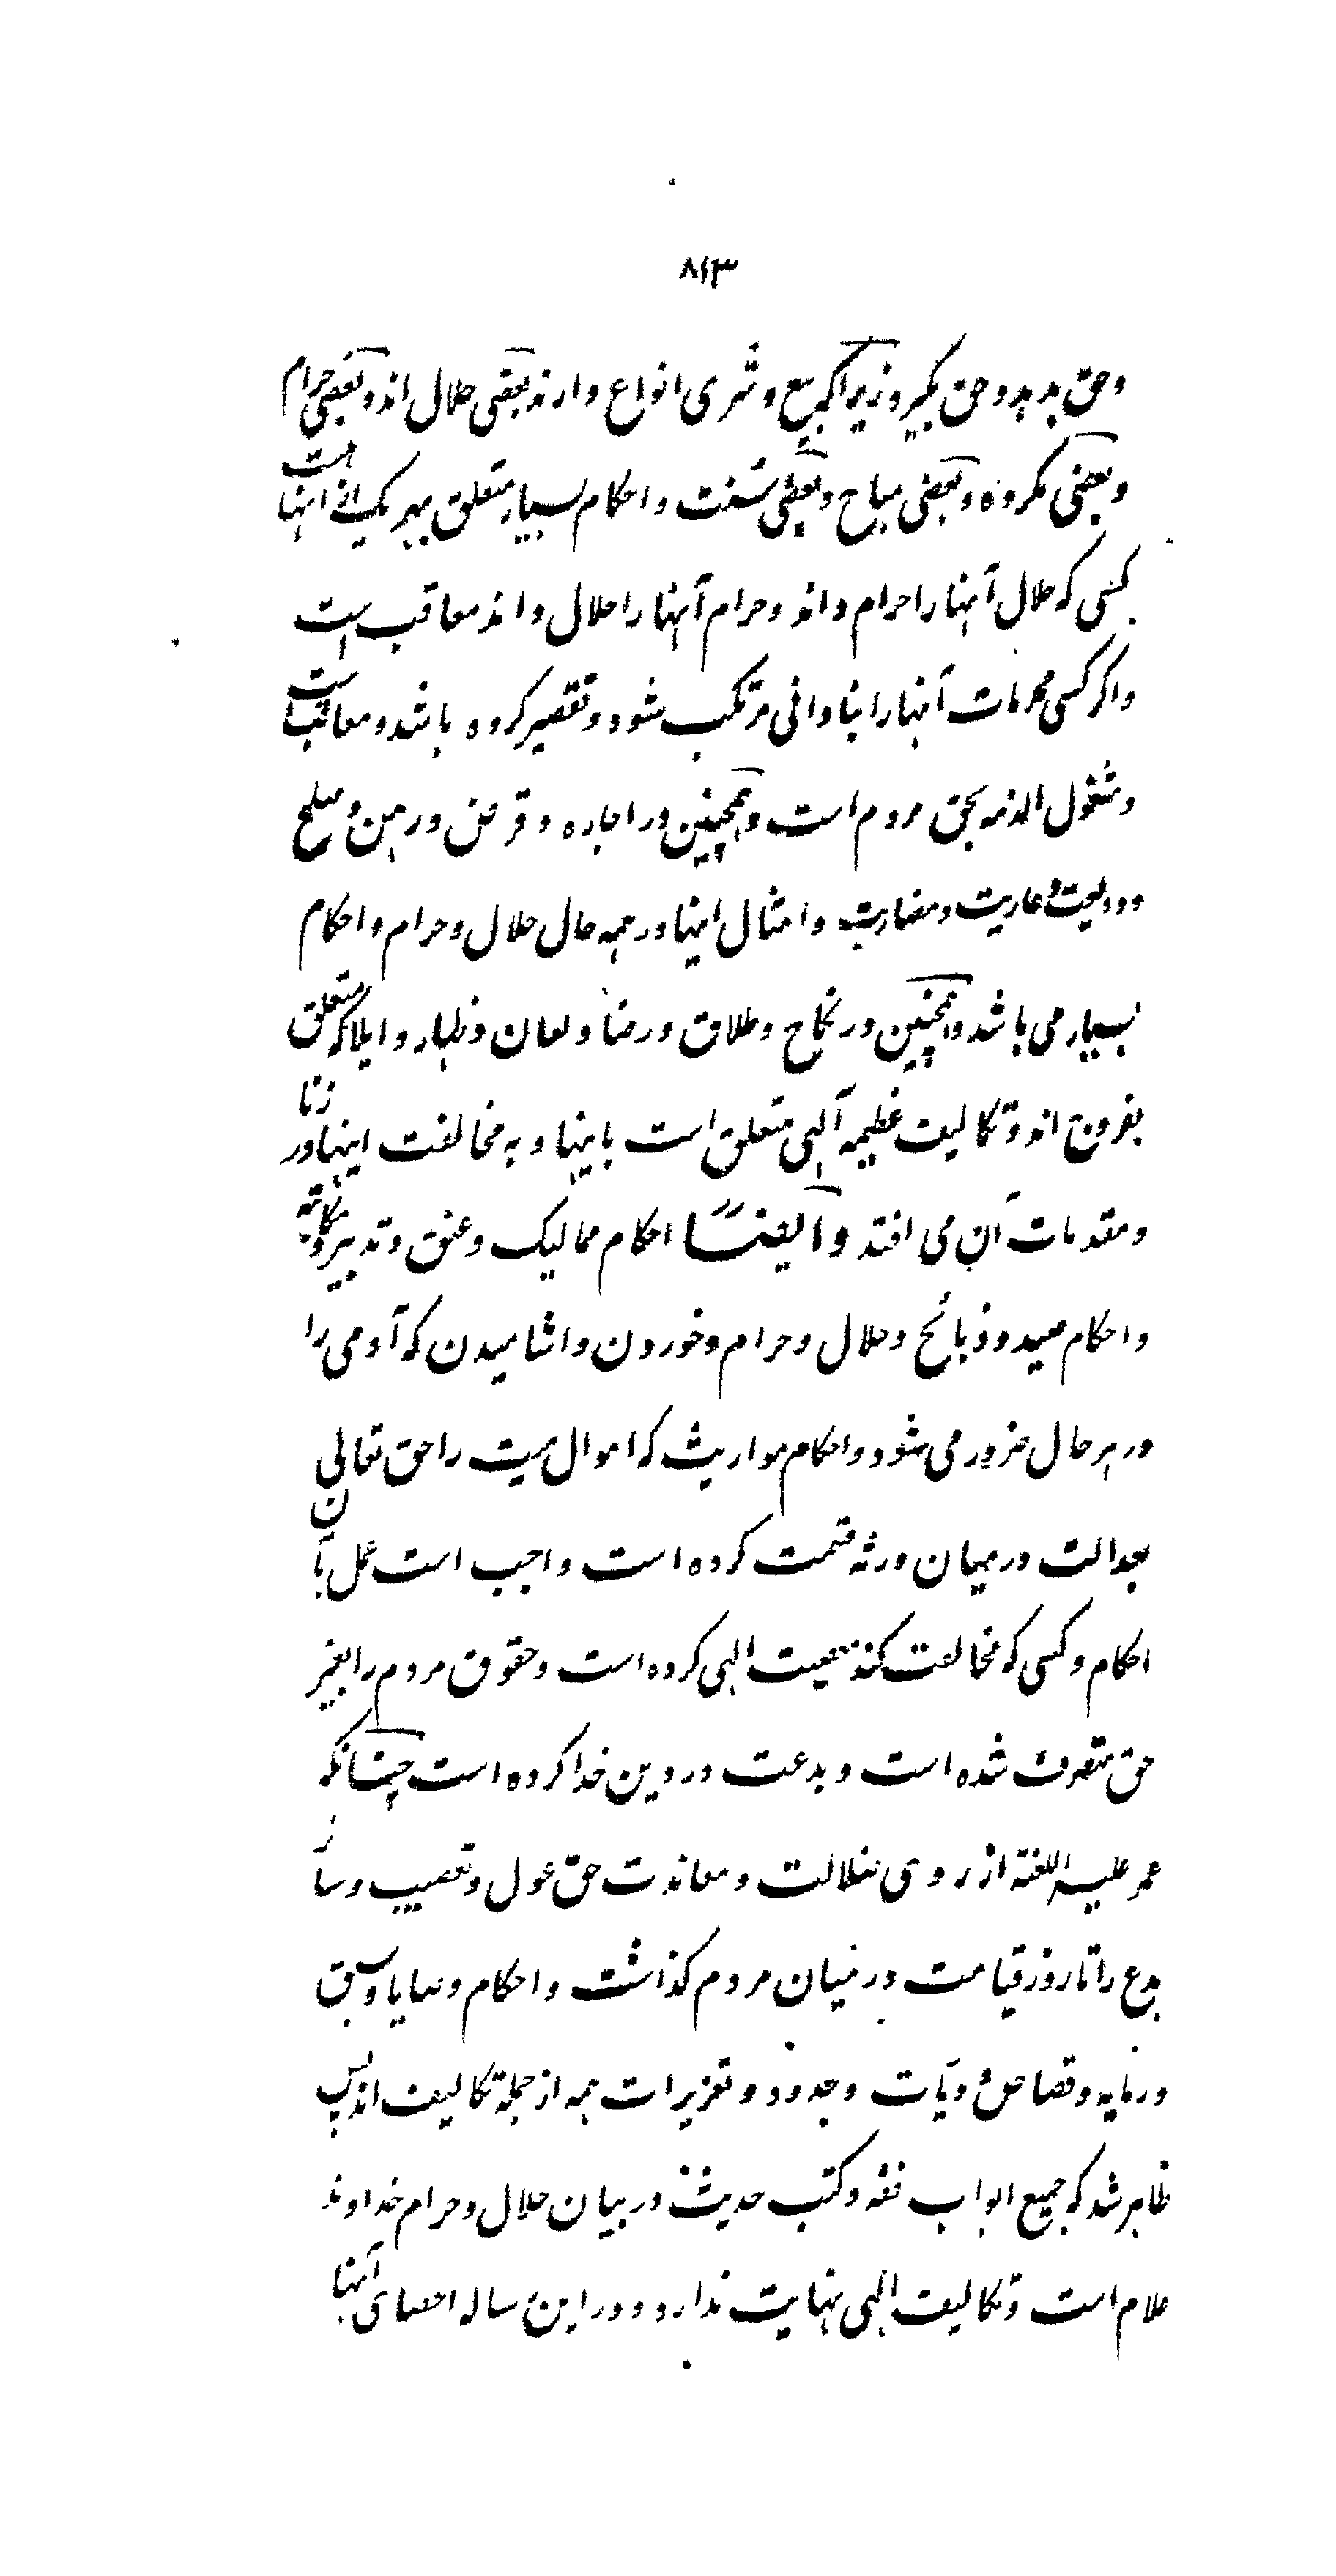 ۸۱۳
وحق بدهد وحق بگیرد زیرا که بیع و شری انواع دارند بعضی حلال اند و بعضی حرام
وبعضی مکروه و بعضی مباح و بعضی سنت و احکام بسیار متعلق بهر یک از اینها است
کسی که حلال آنها را حرام داند و حرام آنها را حلال داند معاقب است
واگر کسی محرمات آنها را بنادانی مرتکب شود و تقصیر کرده باشد و معاقب است
ومشغول الذمه بحق مردم است وهمچنین در اجاره و قرض و رهن و صلح
وودیعت و عاریت و مضاربت وامثال اینها در همه حال حلال و حرام و احکام
بسیار می باشد وهمچنین در نکاح و طلاق و رضا و لعان و ظهار و ایلا که متعلق
بفروج اند و تکالیف عظیمه آلهی متعلق است باینها و به مخالفت اینها در زنا
ومقدمات آن می افتد وایضًا احکام ممالیک و عتق و تدبیر و مکاتبه
واحکام صید و ذبائح و حلال و حرام و خوردن و اشامیدن که آدمی را
در هر حال ضرور می شود و احکام مواریث که اموال میت را حق تعالی
بعدالت در میان ورثه قسمت کرده است واجب است عمل بآن
احکام و کسی که مخالفت کند معصیت الهی کرده است و حقوق مردم را بغیر
حق متصرف شده است و بدعت در دین خدا کرده است چنانکه
عمر علیه اللعنة از روی ضلالت و معاندت حق عول و تعصیب و سائر
بدع را تا روز قیامت در میان مردم گذاشت واحکام وصایا و سبق
ورمایه و قصاص و دیات و حدود و تعزیرات همه از جمله تکالیف اند پس
ظاهر شد که جمیع ابواب فقه و کتب حدیث در بیان حلال و حرام خداوند
علام است و تکالیف الهی نهایت ندارد و در این رساله احصای آنها